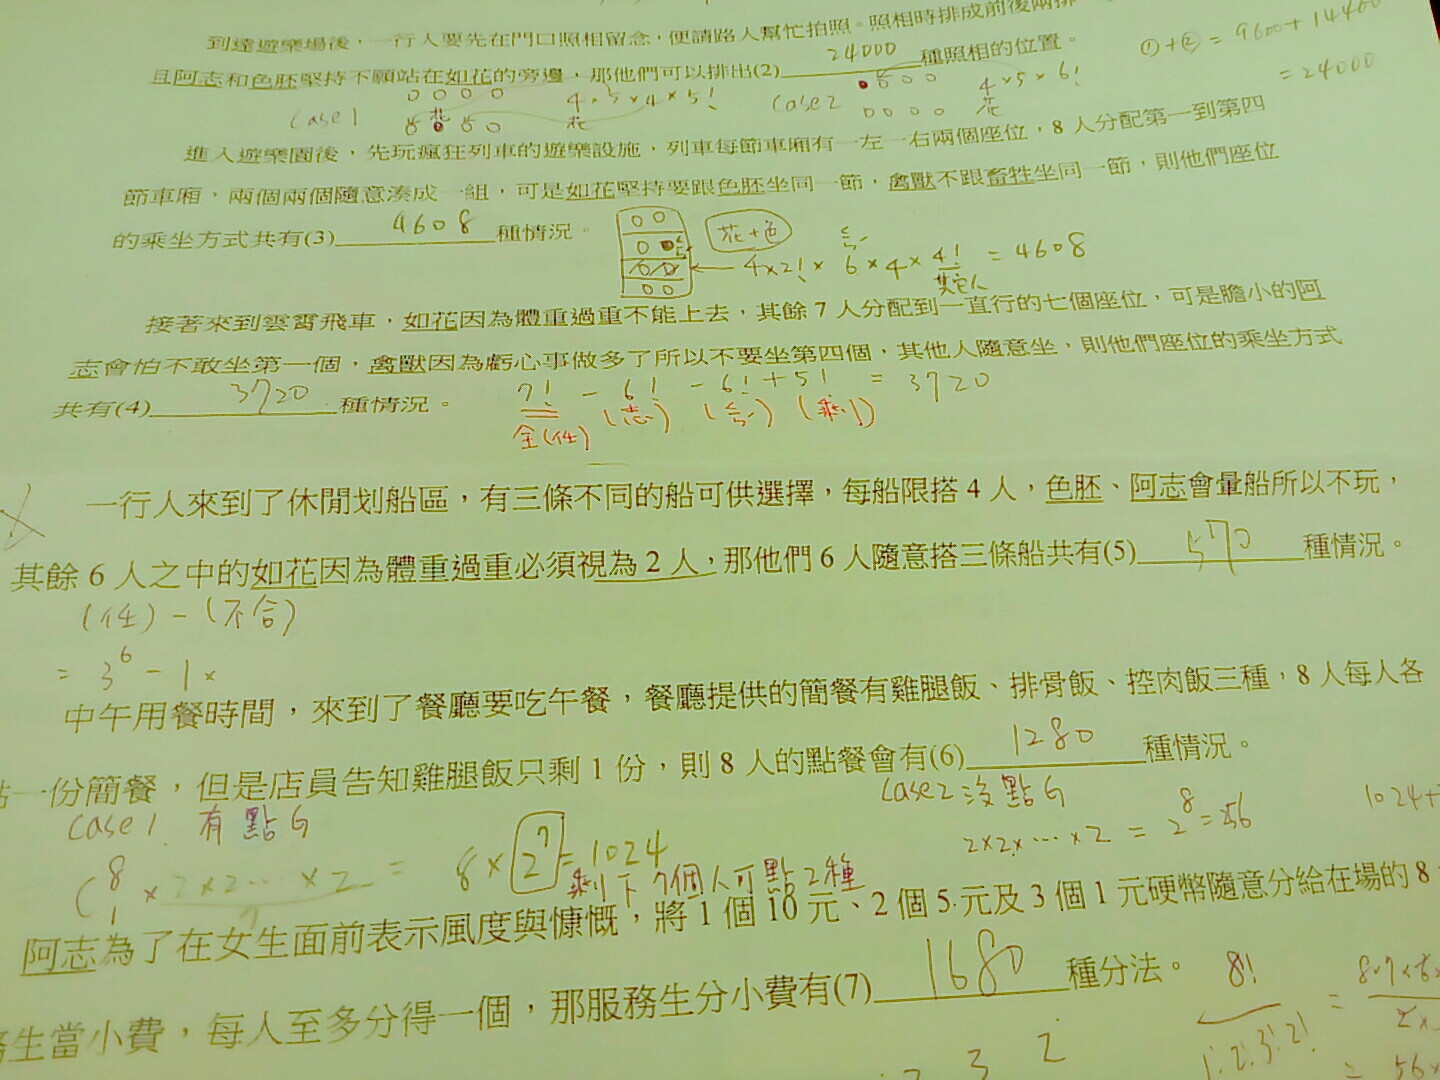 到達遊樂場後，一行人要先在門口照相留念，便請路人幫忙拍照。照相時排成前後兩排
且阿志和色胚堅持不願站在如花的旁邊，那他們可以排出(2) 24000 種照相的位置。
①+②= 9600+14400
= 24000
case 1 4×5×4×5! 花
case 2 4×5×6! 花
進入遊樂園後，先玩瘋狂列車的遊樂設施，列車每節車廂有一左一右兩個座位，8 人分配第一到第四
節車廂，兩個兩個隨意湊成一組，可是如花堅持要跟色胚坐同一節，禽獸不跟畜牲坐同一節，則他們座位
的乘坐方式共有(3) 4608 種情況。
花+色
4×2!×6×4×4! = 4608
其它人
接著來到雲霄飛車，如花因為體重過重不能上去，其餘 7 人分配到一直行的七個座位，可是膽小的阿
志會怕不敢坐第一個，禽獸因為虧心事做多了所以不要坐第四個，其他人隨意坐，則他們座位的乘坐方式
共有(4) 3720 種情況。
7! - 6! - 6! + 5! = 3720
全(任) (志)
一行人來到了休閒划船區，有三條不同的船可供選擇，每船限搭 4 人，色胚、阿志會暈船所以不玩，
其餘 6 人之中的如花因為體重過重必須視為 2 人，那他們 6 人隨意搭三條船共有(5) 570 種情況。
(任) - (不合)
= 3⁶ - 1×
中午用餐時間，來到了餐廳要吃午餐，餐廳提供的簡餐有雞腿飯、排骨飯、控肉飯三種，8 人每人各
點一份簡餐，但是店員告知雞腿飯只剩 1 份，則 8 人的點餐會有(6) 1280 種情況。
case 1 有點G
C⁸₁ × 2×2…×2 = 8×2⁷ = 1024
剩下7個人可點2種
case 2 沒點G
2×2×…×2 = 2⁸ = 256
1024+
阿志為了在女生面前表示風度與慷慨，將 1 個 10 元、2 個 5 元及 3 個 1 元硬幣隨意分給在場的 8
務生當小費，每人至多分得一個，那服務生分小費有(7) 1680 種分法。
8!
1!2!3!2!
3 2